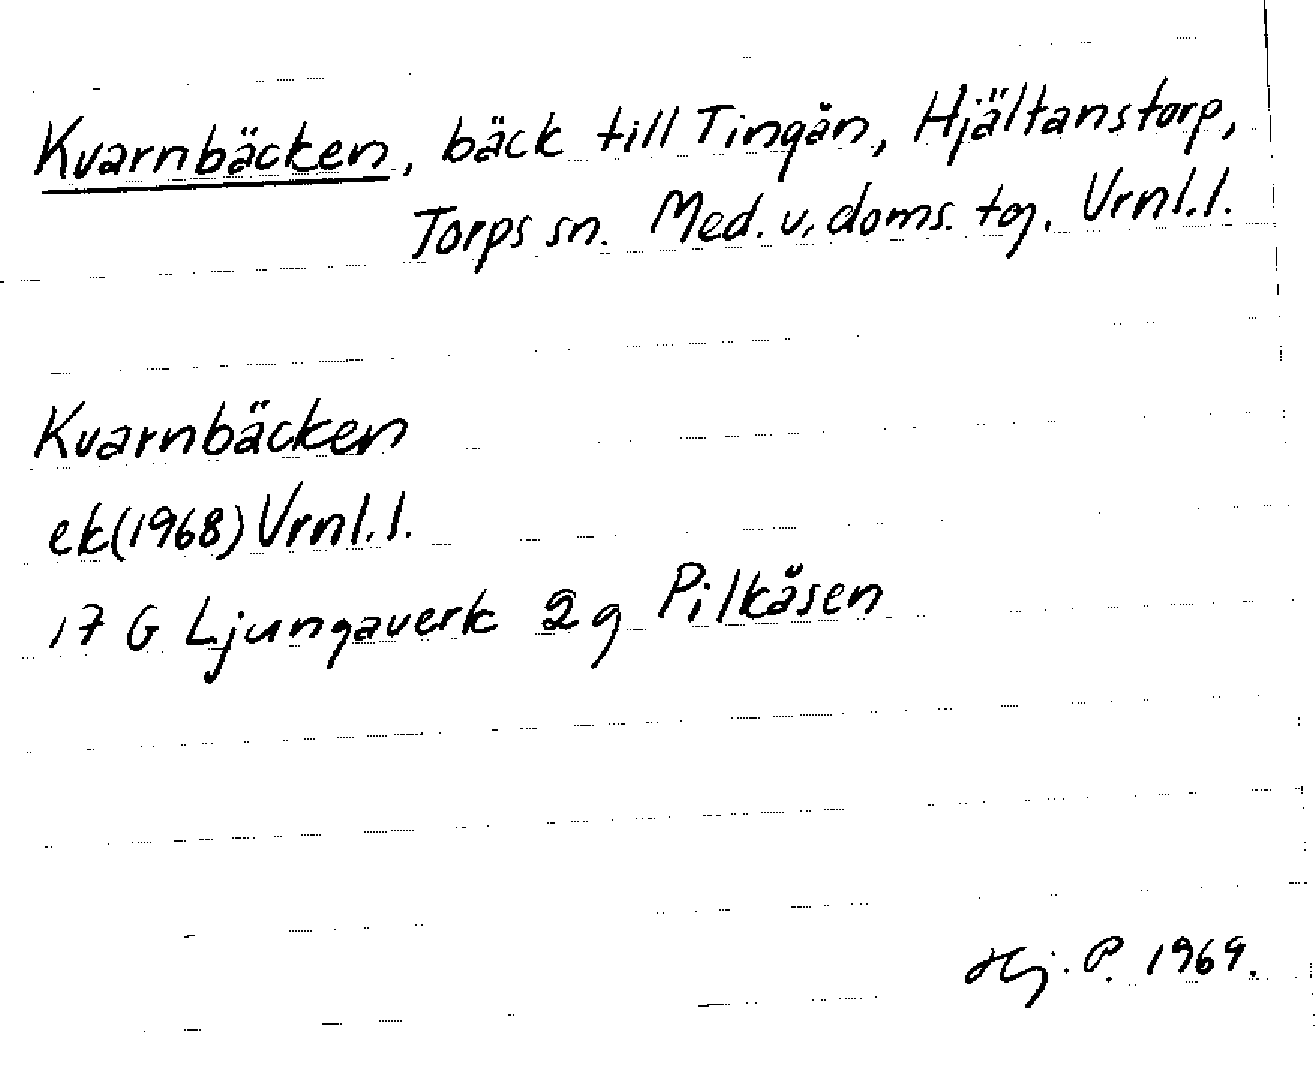 Kvarnbäcken, bäck till Tingån, Hjältanstorp,
Torps sn. Med. v. doms. tg. Vrnl.l.
Kvarnbäcken
ek(1968) Vrnl.l.
17 G Ljungaverk 2g Pilkåsen
Hj. P. 1969.